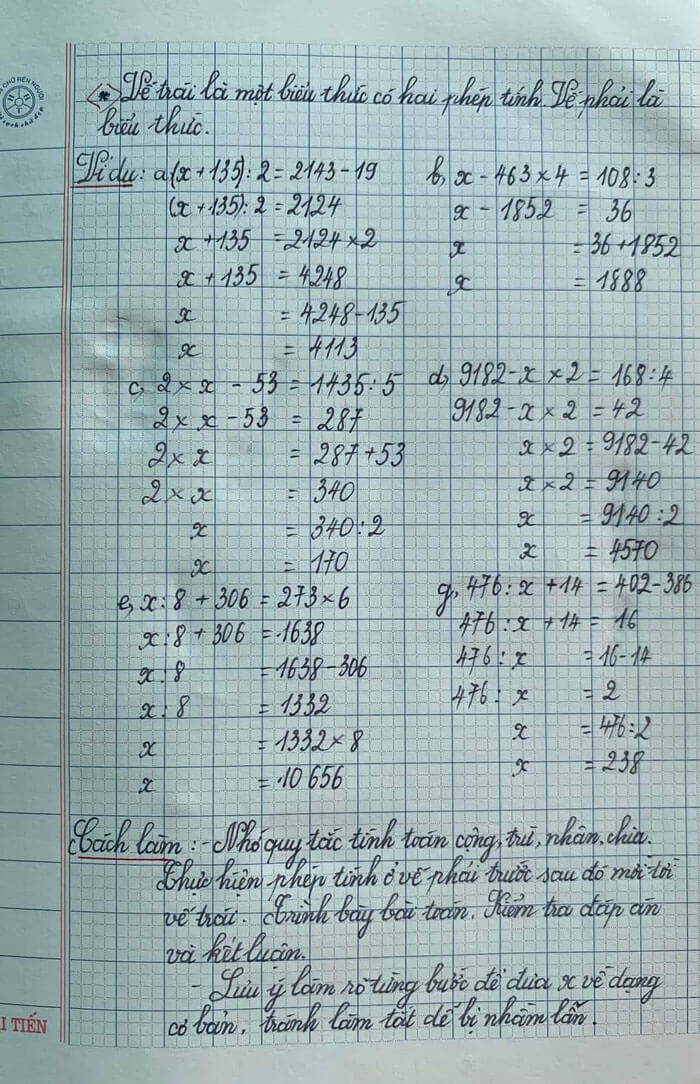 Vế trái là một biểu thức có hai phép tính. Vế phải là
biểu thức.
Ví dụ: a, (x + 135) : 2 = 2143 - 19
(x + 135) : 2 = 2124
x + 135 = 2124 x 2
x + 135 = 4248
x = 4248 - 135
x = 4113
b, x - 463 x 4 = 108 : 3
x - 1852 = 36
x = 36 + 1852
x = 1888
c, 2 x x - 53 = 1435 : 5
2 x x - 53 = 287
2 x x = 287 + 53
2 x x = 340
x = 340 : 2
x = 170
d, 9182 - x x 2 = 168 : 4
9182 - x x 2 = 42
x x 2 = 9182 - 42
x x 2 = 9140
x = 9140 : 2
x = 4570
e, x : 8 + 306 = 273 x 6
x : 8 + 306 = 1638
x : 8 = 1638 - 306
x : 8 = 1332
x = 1332 x 8
x = 10 656
g, 476 : x + 14 = 402 - 386
476 : x + 14 = 16
476 : x = 16 - 14
476 : x = 2
x = 476 : 2
x = 238
Cách làm : - Nhớ quy tắc tính toán cộng, trừ, nhân, chia.
Thực hiện phép tính ở vế phải trước sau đó mới tới
vế trái. Trình bày bài toán. Kiểm tra đáp án
và kết luận.
- Lưu ý làm rõ từng bước để đưa x về dạng
cơ bản, tránh làm tắt dễ bị nhầm lẫn.
I TIẾN